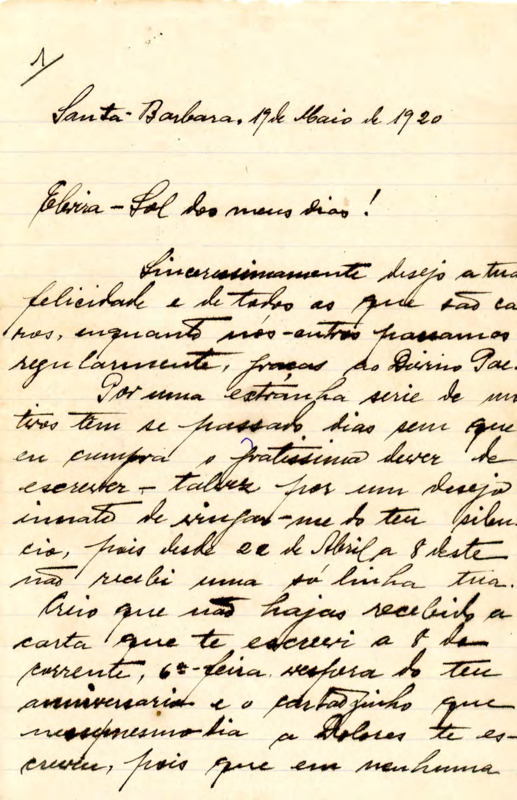 1/
Santa-Barbara, 19 de Maio de 1920
Elvira - Sol dos meus dias!
Sincerissimamente desejo a tua
felicidade e de todos os que são ca
ros, enquanto nos-outros passamos
regularmente, graças ao Divino Pae.
Por uma extranha serie de mo
tivos tem se passado dias sem que
eu cumpra o gratissimo dever de
escrever - talvez por um desejo
innato de vingar-me do teu silen-
cio, pois desde 22 de Abril a 8 deste
não recebi uma só linha tua.
Creio que não hajas recebido a
carta que te escrevi a 7 do
corrente, 6ª-feira vespera do teu
anniversario e o cartãozinho que
nesse mesmo dia a Dolores te es-
creveu, pois que em nenhuma